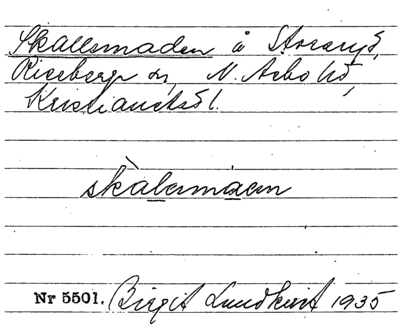 Skallsmaden å Stoaryd,
Riseberga sn, N. Åsbo hd,
Kristianstads l.
skàlermáen
Nr 5501. Birgit Lundkvist 1935